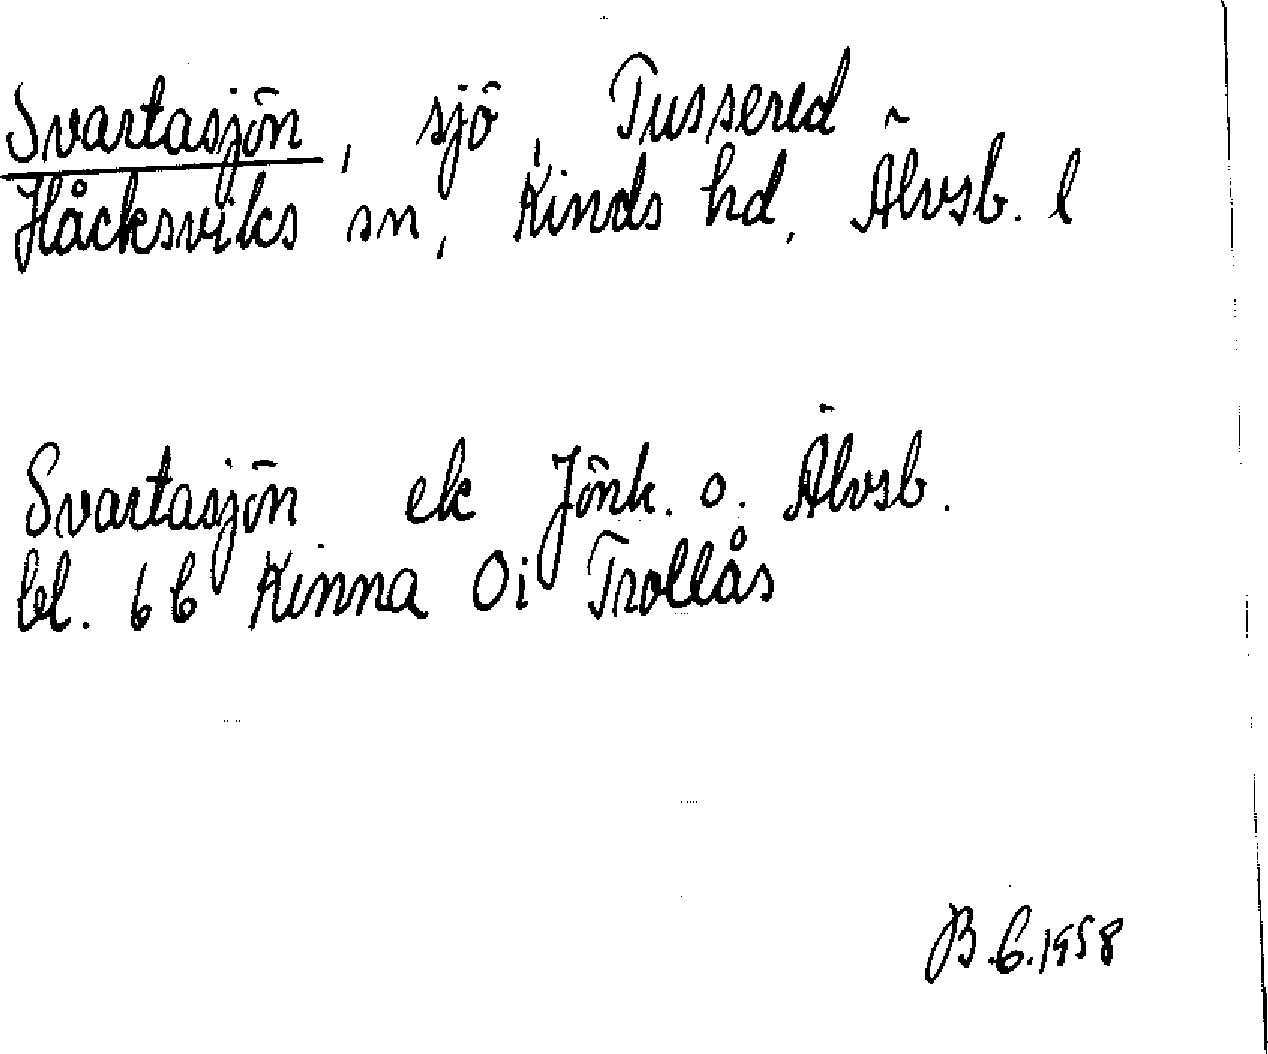 Svartasjön, sjö, Tussered
Håcksviks sn, Kinds hd, Älvsb. l
Svartasjön ek Jönk. o. Älvsb.
bl. 6b Kinna Oi Trollås
B.G.1958